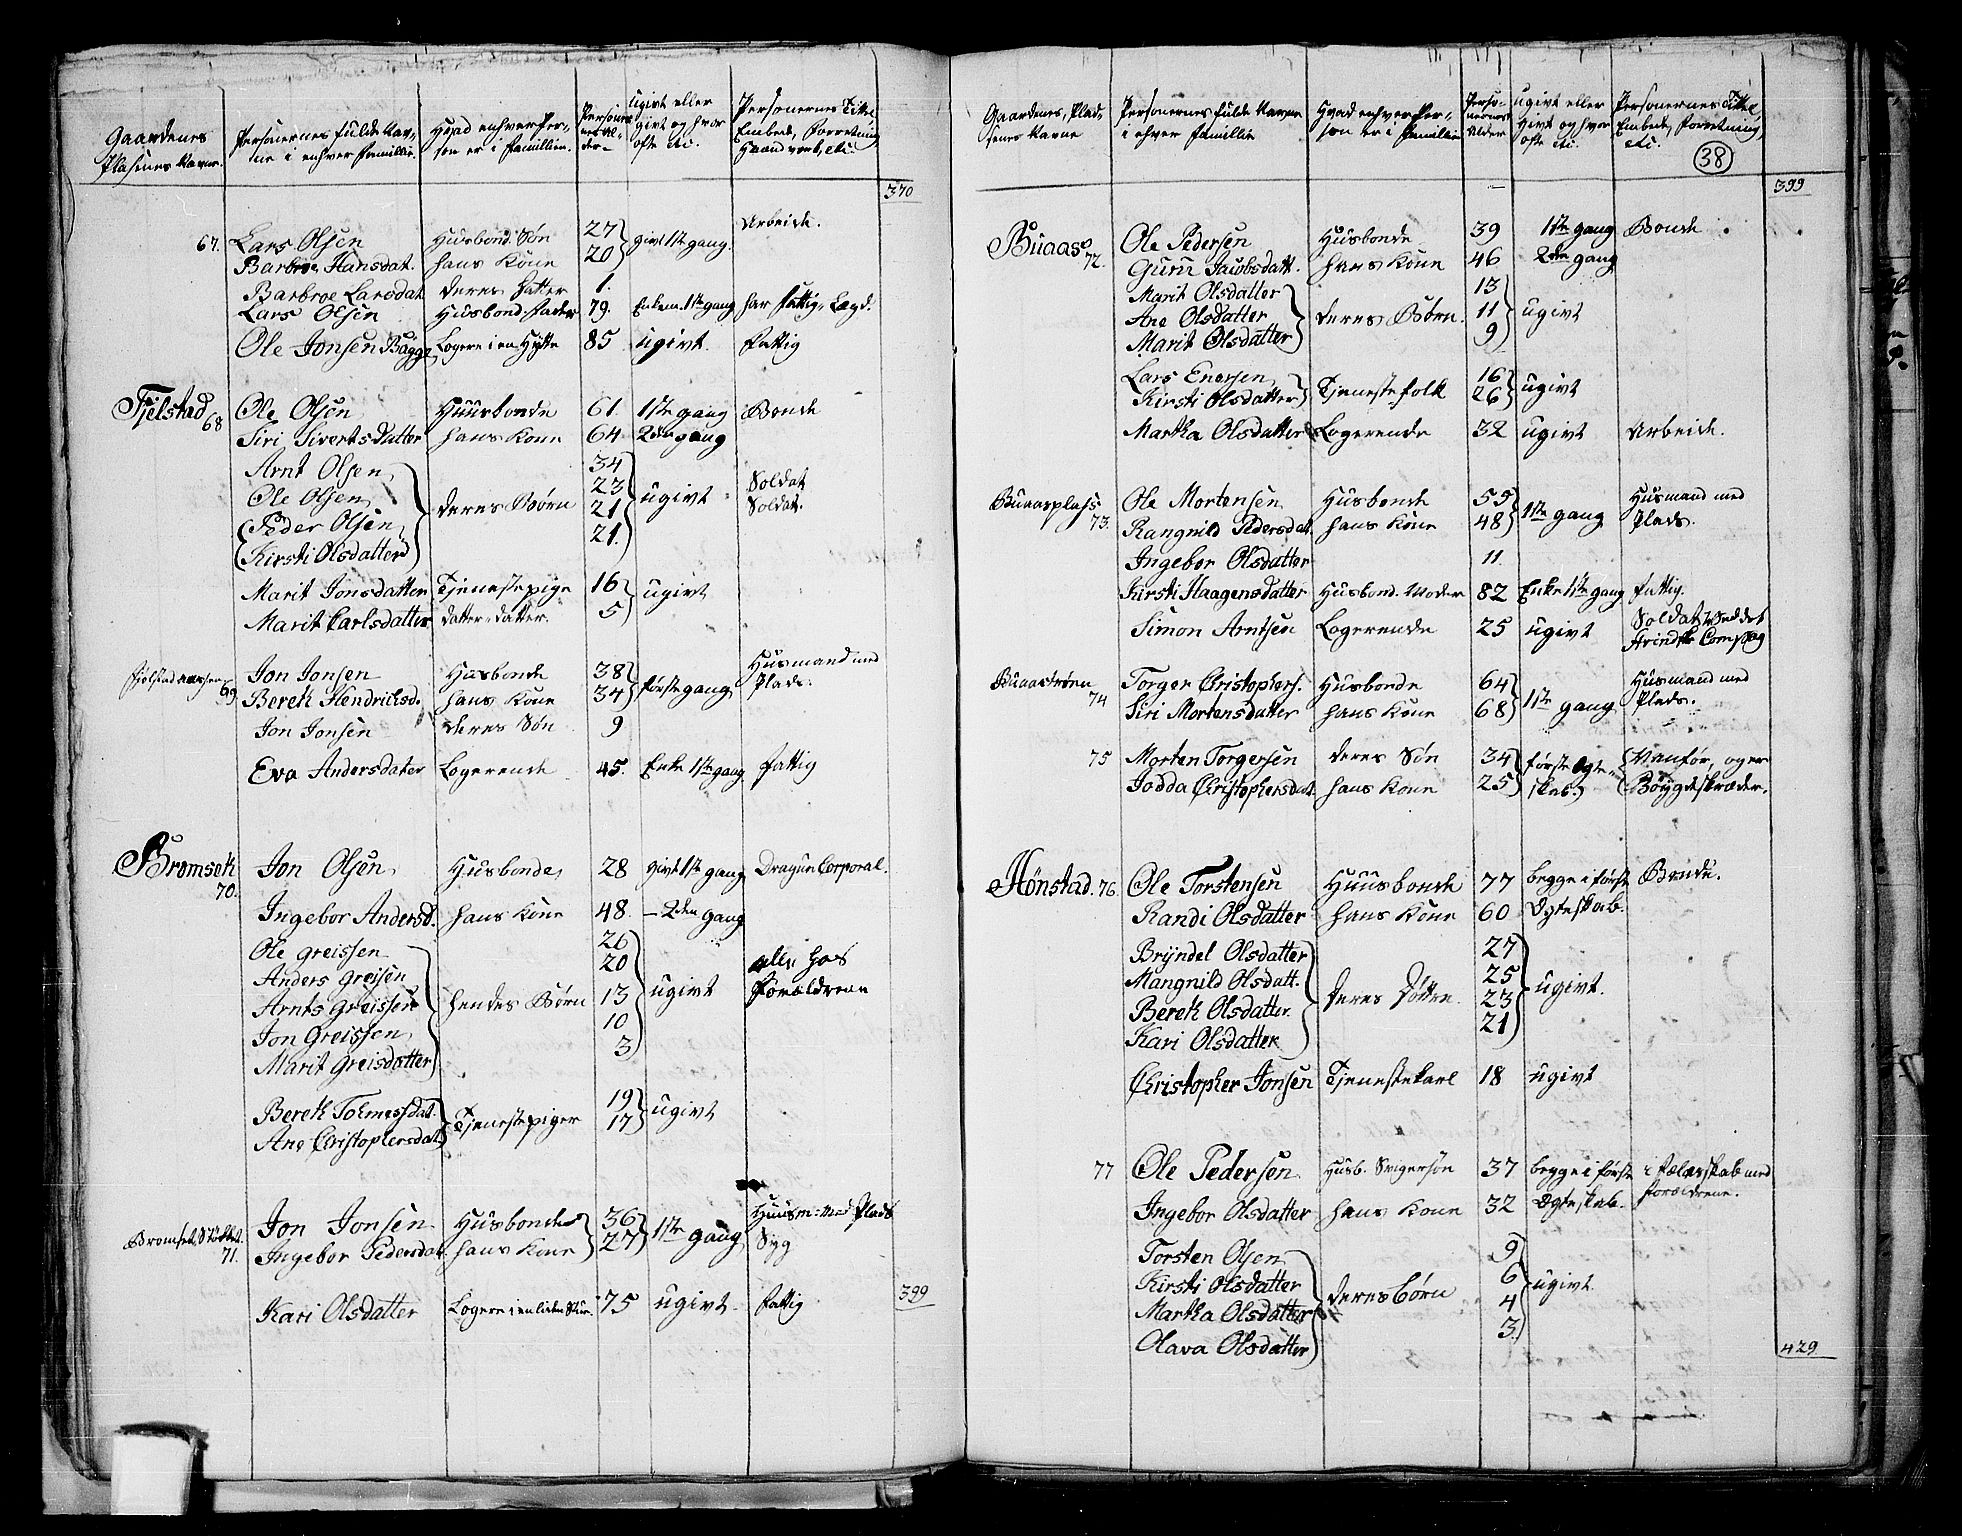 Gaardenes Plasenes Navne. | Personernes fulde Navne i enhver Famillie. | Hvad enhver Person er i Famillien. | Personernes Alder | ugivt eller givt og hvor ofte etc. | Personernes Tittel, Embede, Forretning Haandverk, etc.
370
67. Lars Olsen | Husbond. Søn | 27 | givt 1ste gang. | Arbeide.
Barbroe Hansdat. | hans Kone | 20
Barbroe Larsdat | deres Datter | 1.
Lars Olsen | Husbond: Fader | 79. | Enkem. 1ste gang | har fattig-Lægd.
Ole Jonsen Bagge | Logere i en Hytte | 85 | ugivt. | fattig
Fjelstad 68 | Ole Olsen | Huusbonde | 61. | 1ste gang | Bonde
Siri Sivertsdatter | hans Kone | 64 | 2den gang
Arnt Olsen | 34
Ole Olsen | deres Børn | 23 | ugivt | Soldat
Peder Olsen | 21 | Soldat.
Kirsti Olsdatter | 21.
Marit Jonsdatter | Tjenestepige | 16 | ugivt
Marit Carlsdatter | datter-datter. | 5
69 | Jon Jonsen | Husbonde | 38 | første gang | Husmand med Plads.
Berek Hendriksd. | hans Kone | 34
Jon Jonsen | deres Søn | 9
Eva Andersdater | Logerende | 45. | Enke 1ste gang | fattig
Bromsek 70. | Jon Olsen | Husbonde | 28 | givt 1ste gang | Dragun Corporal.
Ingebor Andersd. | hans Kone | 48. | - 2den gang
Ole Greissen | 26
Anders Greisen | 20 | alle hos
Arnts Greissen | hendes Børn | 13 | ugivt | Forældrene
Jon Greissen | 10
Marit Greisdatter | 3
Berek Tolmessdat. | Tjenestepiger | 19 | ugivt
Ane Christophersdat | 17
71. | Jon Jonsen | Husbonde | 36 | 1ste gang | Huusm: med Plads
Ingebor Pedersdat | hans Kone | 27 | Syg
Kari Olsdatter | Logere i en liden Stue | 75 | ugivt. | fattig
399
Gaardenes, Pladsenes Navne | Personernes fulde Navne i ehver Famillie | Hvad enhver Person er i Famillien | Personernes Alder | ugivt eller Givt og hvor ofte etc. | Personernes Tittel, Embede, Forretning, etc.
38
399
Buaas 72. | Ole Pedersen | Husbonde | 39 | 1ste gang | Bonde
Guru Jacobsdatt. | hans Kone | 46 | 2den gang
Marit Olsdatter | 13
Ane Olsdatter | deres Børn. | 11 | ugivt
Marit Olsdatter | 9
Lars Enersen | Tjenestefolk | 16 | ugivt
Kirsti Olsdatter | 26
Martha Olsdatter | Logerende | 32 | ugivt | Arbeide.
Buaasplass 73. | Ole Mortensen | Husbonde | 55 | 1ste gang | Husmand med Plads.
Rangnild Pedersdat. | hans Kone | 48
Ingebor Olsdatter | 11.
Kirsti Haagensdatter | Husbond. Moder | 82 | Enke 1ste gang | fattig.
Simon Arntsen | Logerende | 25 | ugivt | Soldat ved det
74 | Torger Christophers. | Husbonde | 64 | 1ste gang | Husmand med Plads.
Siri Mortensdatter | hans Kone | 68
75 | Morten Torgersen | deres Søn | 34 | første Ægteskab. | Vanfør, og er
Jodda Christophersdat. | hans Kone | 25 | Bøygdeskræder.
Hønstad. 76. | Ole Torstensen | Huusbonde | 77 | begge i første | Bonde.
Randi Olsdatter | hans Kone | 60 | Ægteskab.
Bryndel Olsdatter | 27
Mangnild Olsdatt. | deres Døttre. | 25 | ugivt.
Berek Olsdatter | 23
Kari Olsdatter | 21
Christopher Jonsen | Tjenestekarl | 18 | ugivt
77 | Ole Pedersen | Husb. Svigersøn | 37 | begge i første | i fælesskab med
Ingebor Olsdatter | hans Kone | 32 | Ægteskab. | Forældrene.
Torsten Olsen | 9
Kirsti Olsdatter | deres børn | 6 | ugivt
Martha Olsdatter | 4
Olava Olsdatter | 3.
429